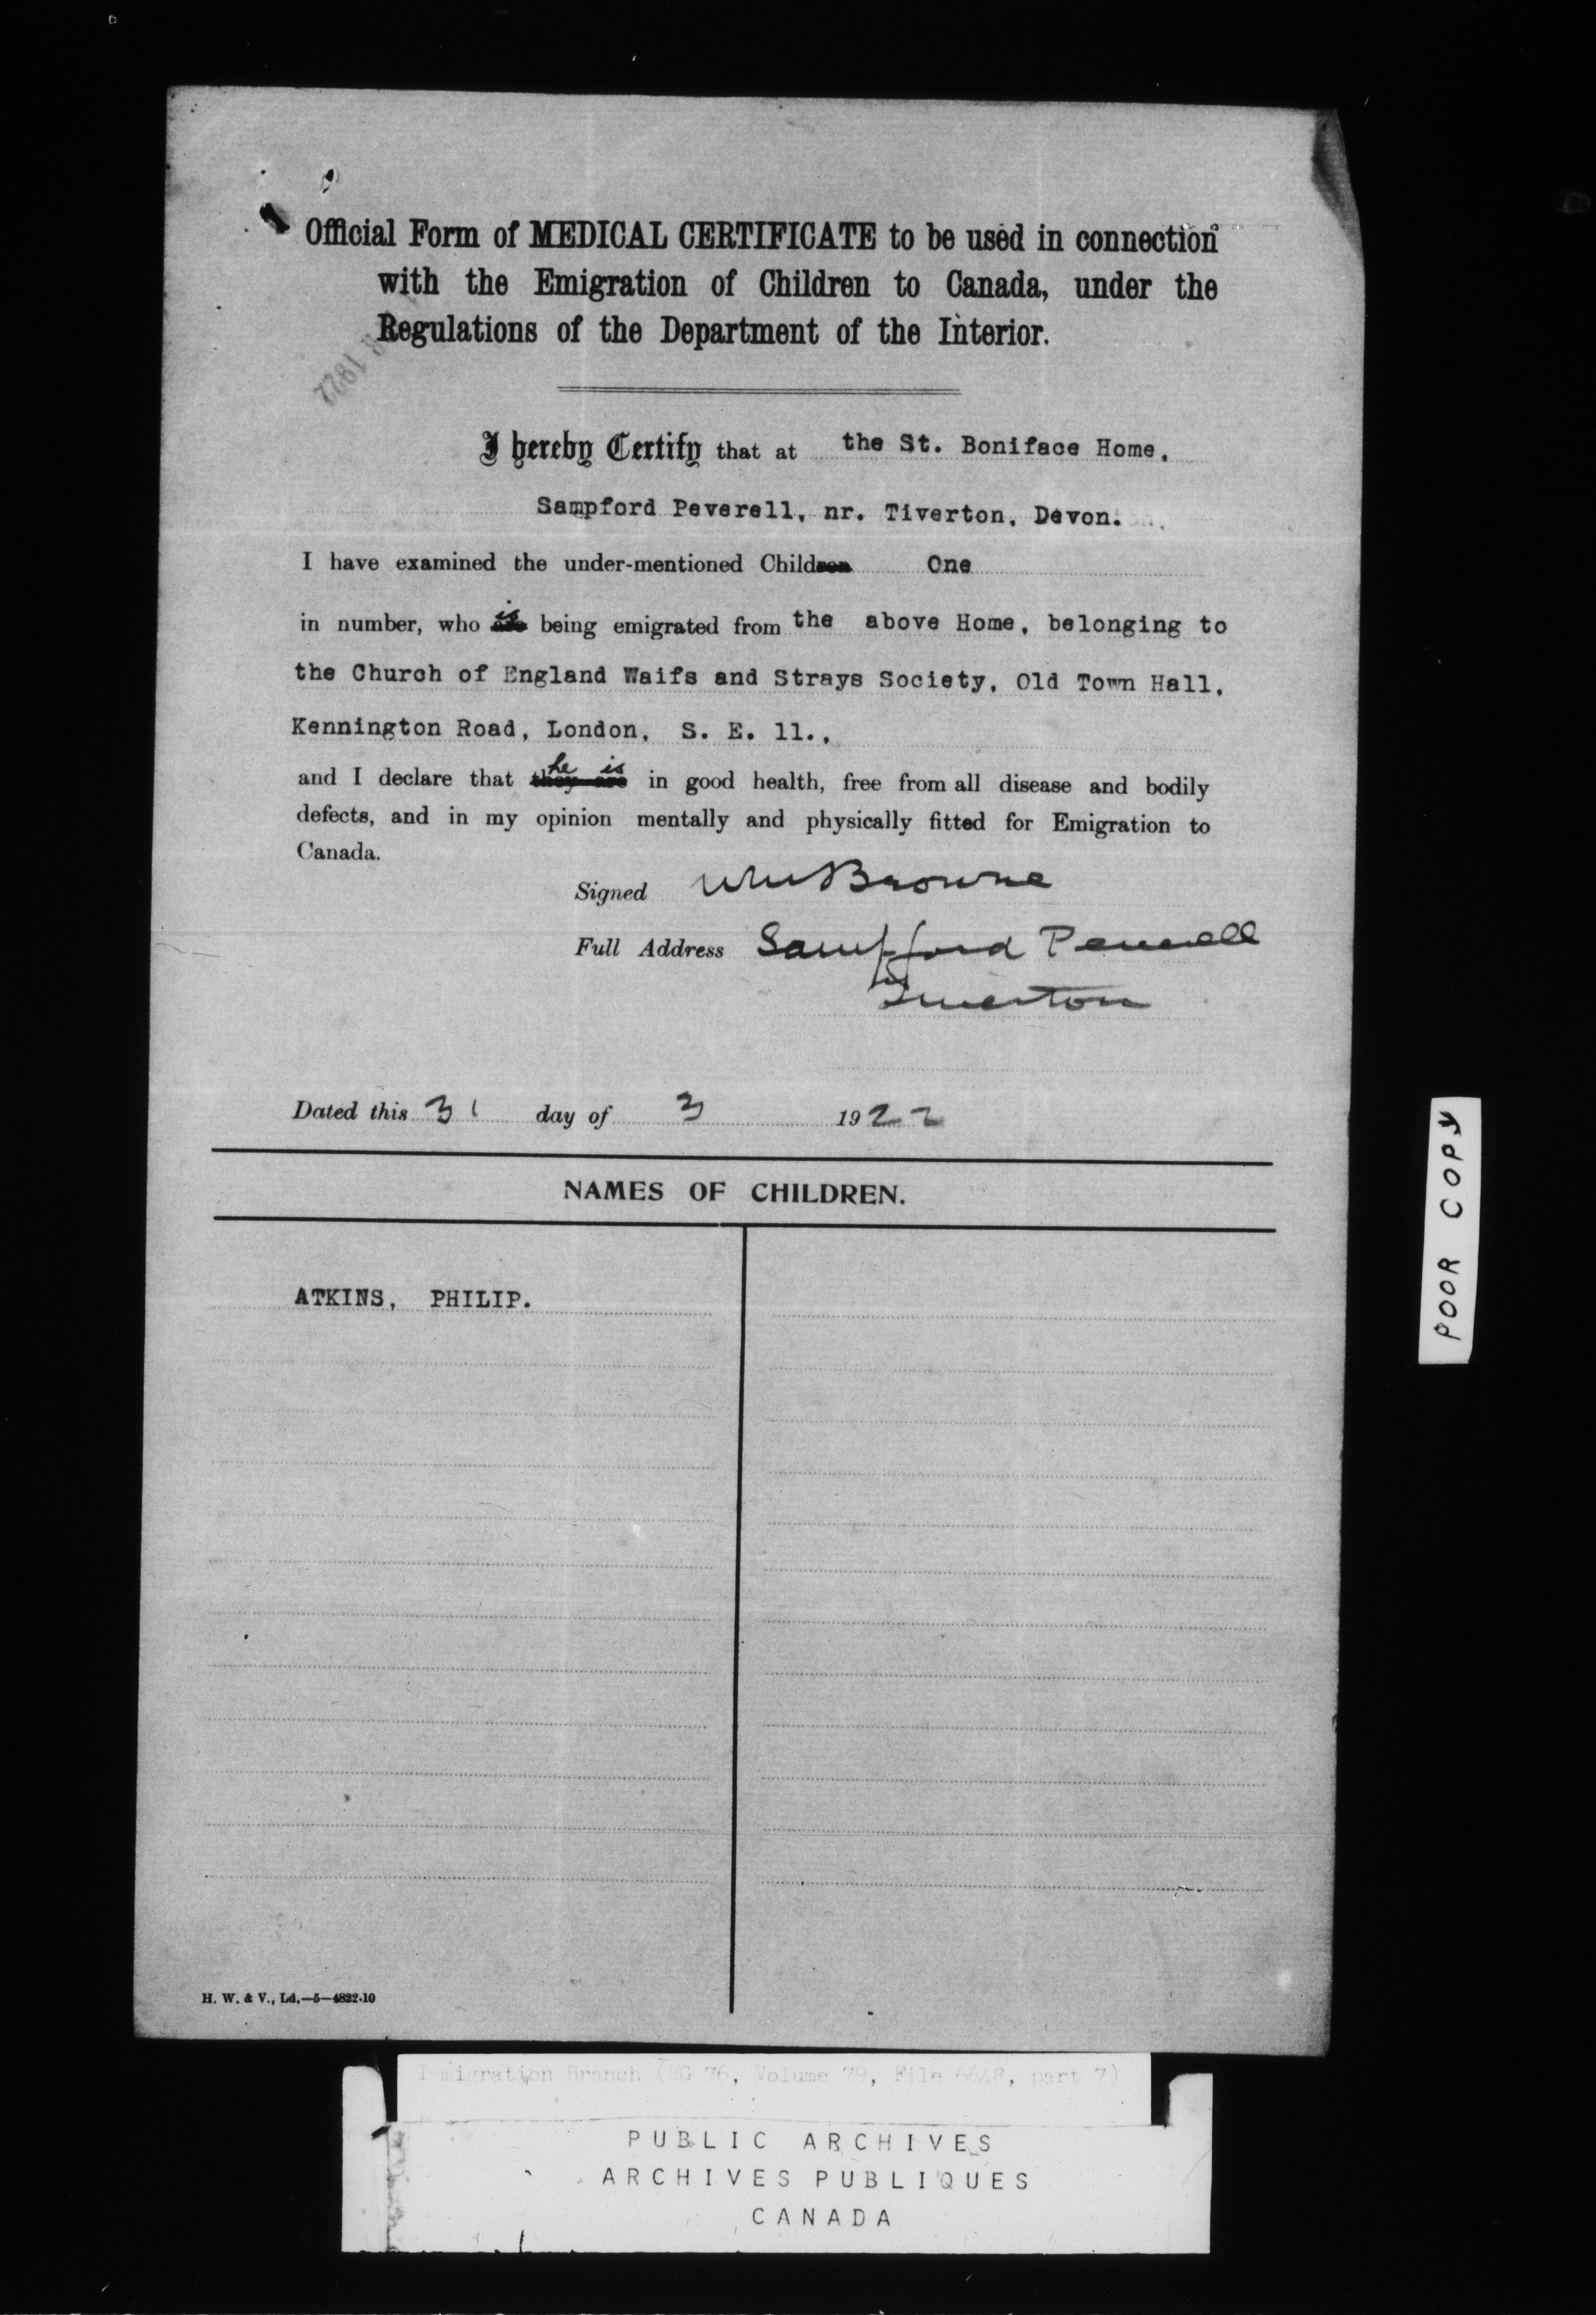 Official Form of MEDICAL CERTIFICATE to be used in connection
with the Emigration of Children to Canada, under the
Regulations of the Department of the Interior.
1922
I hereby Certify that at the St. Boniface Home,
Sampford Peverell, nr. Tiverton, Devon.
I have examined the under-mentioned Children One
is
in number, who are being emigrated from the above Home, belonging to
the Church of England Waifs and Strays Society, Old Town Hall,
Kennington Road, London, S. E. 11.,
he is
and I declare that they are in good health, free from all disease and bodily
defects, and in my opinion mentally and physically fitted for Emigration to
Canada.
Signed Browne
Full Address Sampford Peverell
Tiverton
Dated this 31 day of 3 1922
NAMES OF CHILDREN.
ATKINS, PHILIP.
H. W. & V., Ld.—5—4822.10
POOR COPY
Immigration Branch (RG 76, Volume 79, File 6648, part 7)
PUBLIC ARCHIVES
ARCHIVES PUBLIQUES
CANADA